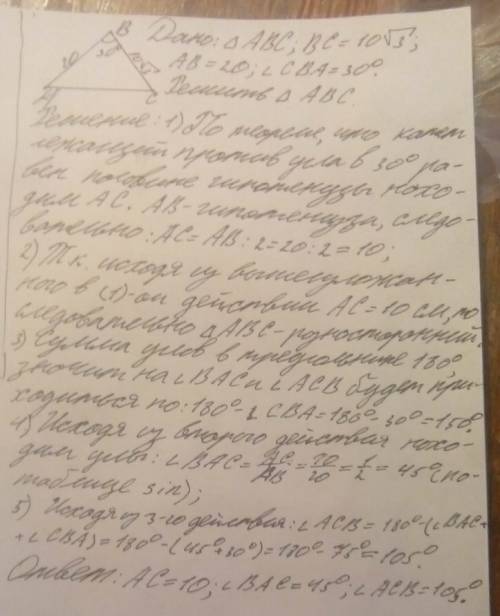 B
Дано: △ABC; BC=10√3;
20 30° 10√3
AB=20; ∠CBA=30°.
A C
Решить △ABC.
Решение: 1) По теореме, что катет
лежащий против угла в 30° ра-
вен половине гипотенузы нахо-
дим AC. AB-гипотенуза, следо-
вательно: AC=AB:2=20:2=10;
2) Т.к. исходя из вышеизложан-
ного в (1)-ом действии AC=10см, то
следовательно △ABC-разносторонний.
3) Сумма углов в треугольнике 180°,
значит на ∠BAC и ∠ACB будет при-
ходиться по: 180°-∠CBA=180°-30°=150°.
4) Исходя из второго действия нахо-
дим углы: ∠BAC=AC/AB=10/20=1/2=45° (по
таблице sin);
5) Исходя из 3-го действия: ∠ACB=180°-(∠BAC+
+∠CBA)=180°-(45°+30°)=180°-75°=105°.
Ответ: AC=10; ∠BAC=45°; ∠ACB=105°.